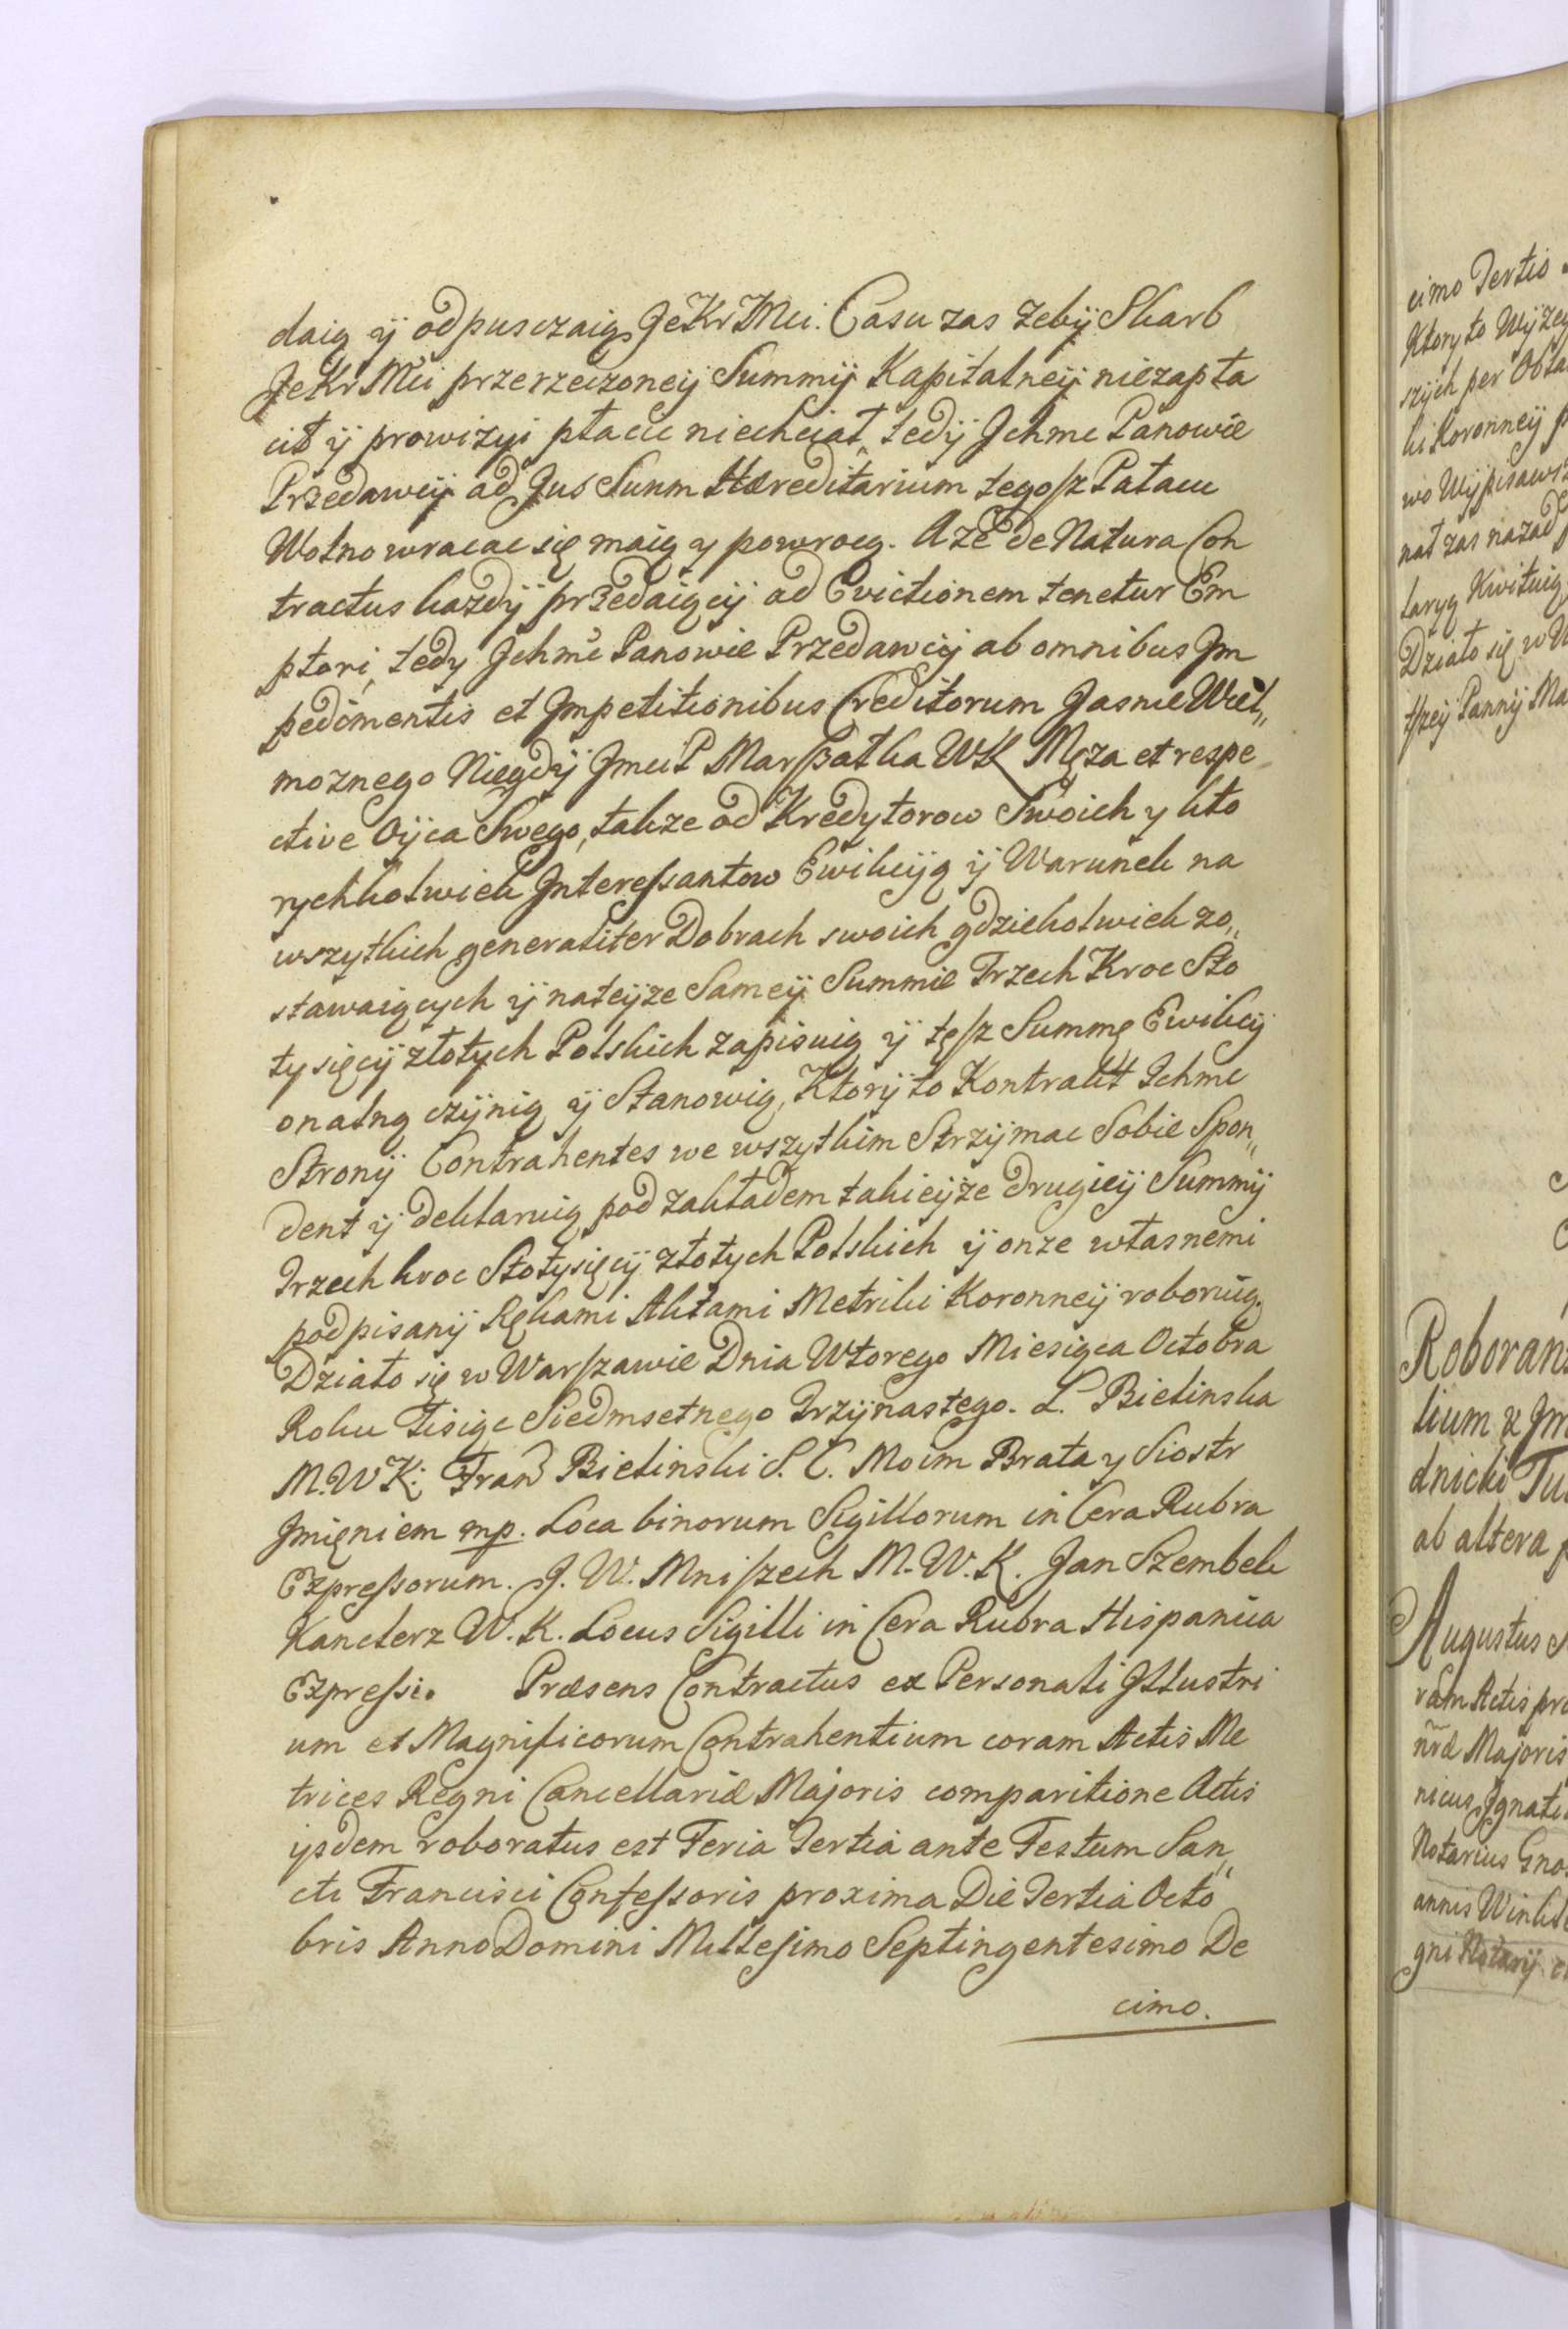 daią ÿ odpusczaią JeKrMci. Casu zas zebÿ Skarb
JeKrMci przerzeczoneÿ Summÿ Kapitalneÿ niezapła
cił ÿ prowizyi płacic niechciał, tedÿ Jchmc Panowie
Przedawcÿ ad Jus Suum Hæreditarium tegosz Pałacu
Wolno wracac się maią y powrocą. Aże de Natura Con
tractus kazdÿ przedaiącÿ ad Evictionem tenetur Em
ptori, tedy Jchmc Panowie Przedawcÿ ab omnibus Jm
pedimentis et Jmpetitionibus Creditorum Jasnie Wiel„
moznego Niegdÿ JmciP Marszałka WK Męza et respe„
ctive Oÿca Swego, takze od Kredytorow Swoich y kto
rychkolwiek Jnteressantow Ewikcÿą ÿ Warunek na
wszytkich generaliter Dobrach swoich gdziekolwiek zo„
stawaiących ÿ nateÿze Sameÿ Summie Trzech Kroc Sto
tysięcÿ złotych Polskich zapisuią ÿ tęsz Summę Ewikcÿ
onalną czÿnią ÿ Stanowią, Ktorÿ to Kontrakt Jchmc
Stronÿ Contrahentes we wszytkim Strzÿmac Sobie Spon„
dent ÿ deklaruią pod zakładem takieÿze drugieÿ Summÿ
Trzech kroc Stotysięcÿ złotych Polskich ÿ onze własnemi
podpisanÿ Rękami Aktami Metriki Koronneÿ roboruią.
Działo się w Warszawie Dnia Wtorego Miesiąca Octobra
Roku Tisiąc Siedmsetnego Trzÿnastego. L. Bielinska
M.W K: Fran Bielinski S. C. Moim Brata y Siostr
Jmięniem mp. Loca binorum Sigillorum in Cera Rubra
Expressorum. J. W. Mniszech M. W. K. Jan Szembek
Kanclerz W. K. Locus Sigilli in Cera Rubra Hispanica
Expressi. Præsens Contractus ex Personali Jllustri
um et Magnificorum Contrahentium coram Actis Me
trices Regni Cancellariæ Majoris comparitione Actis
ijsdem roboratus est Feria Tertia ante Festum San„
cti Francisci Confessoris proxima Die Tertia Octo
bris Anno Domini Millesimo Septingentesimo De
cimo.
cimo Tertio
Ktory to Wÿzeÿ
szÿch per Obla
ki Koronneÿ
wo Wÿpisawsz
nał zas nazad
laryą Kwituią
Działo się w W
tszeÿ Pannÿ Ma
Roboran
lium & Jm
dnicki Tu
ab altera
Augustus
ram Actis pr
nræ Majoris
nicus Jgnati
Notarius Gno
annis Winkl
gni Notarÿ